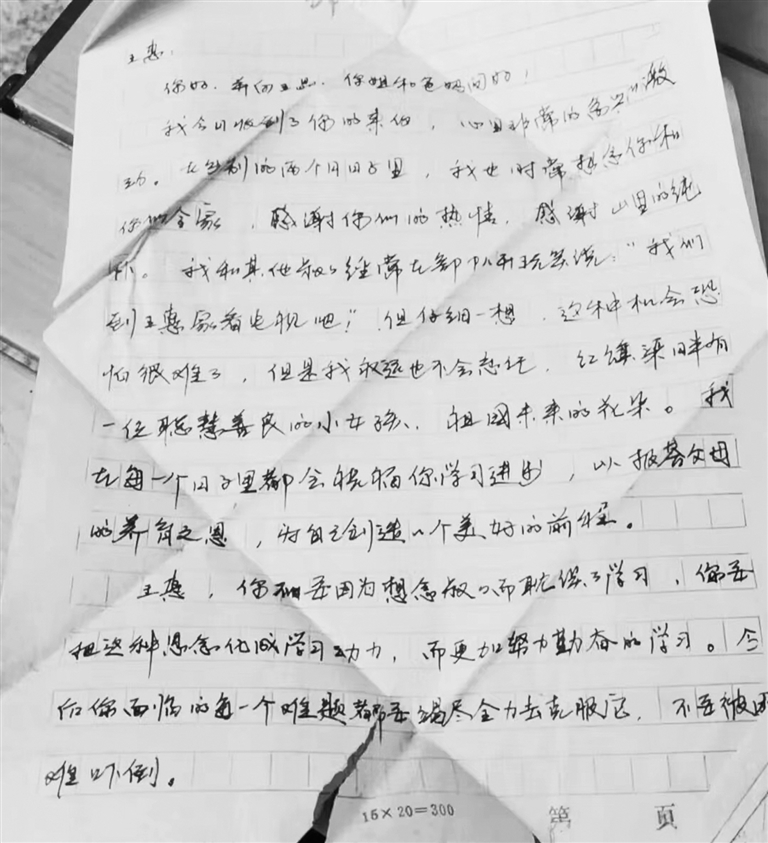 王惠:
你好。并向王思、你姐和爸妈问好!
我今日收到了你的来信,心里非常的高兴激
动。在分别的两个月日子里,我也时常想念你和
你们全家,感谢你们的热情,感谢山里的纯
朴。我和其他叔叔经常在部队开玩笑说:“我们
到王惠家看电视吧!”但仔细一想,这种机会恐
怕很难了,但是我永远也不会忘记,红旗渠畔有
一位聪慧善良的小女孩、祖国未来的花朵。我
在每一个日子里都会祝福你学习进步,以报答父母
的养育之恩,为自己创造一个美好的前程。
王惠,你不要因为想念叔叔而耽误了学习,你要
把这种思念化成学习动力,而更加努力勤奋的学习。今
后你面临的每一个难题都要竭尽全力去克服它,不要被困
难吓倒。
15×20=300
第 頁